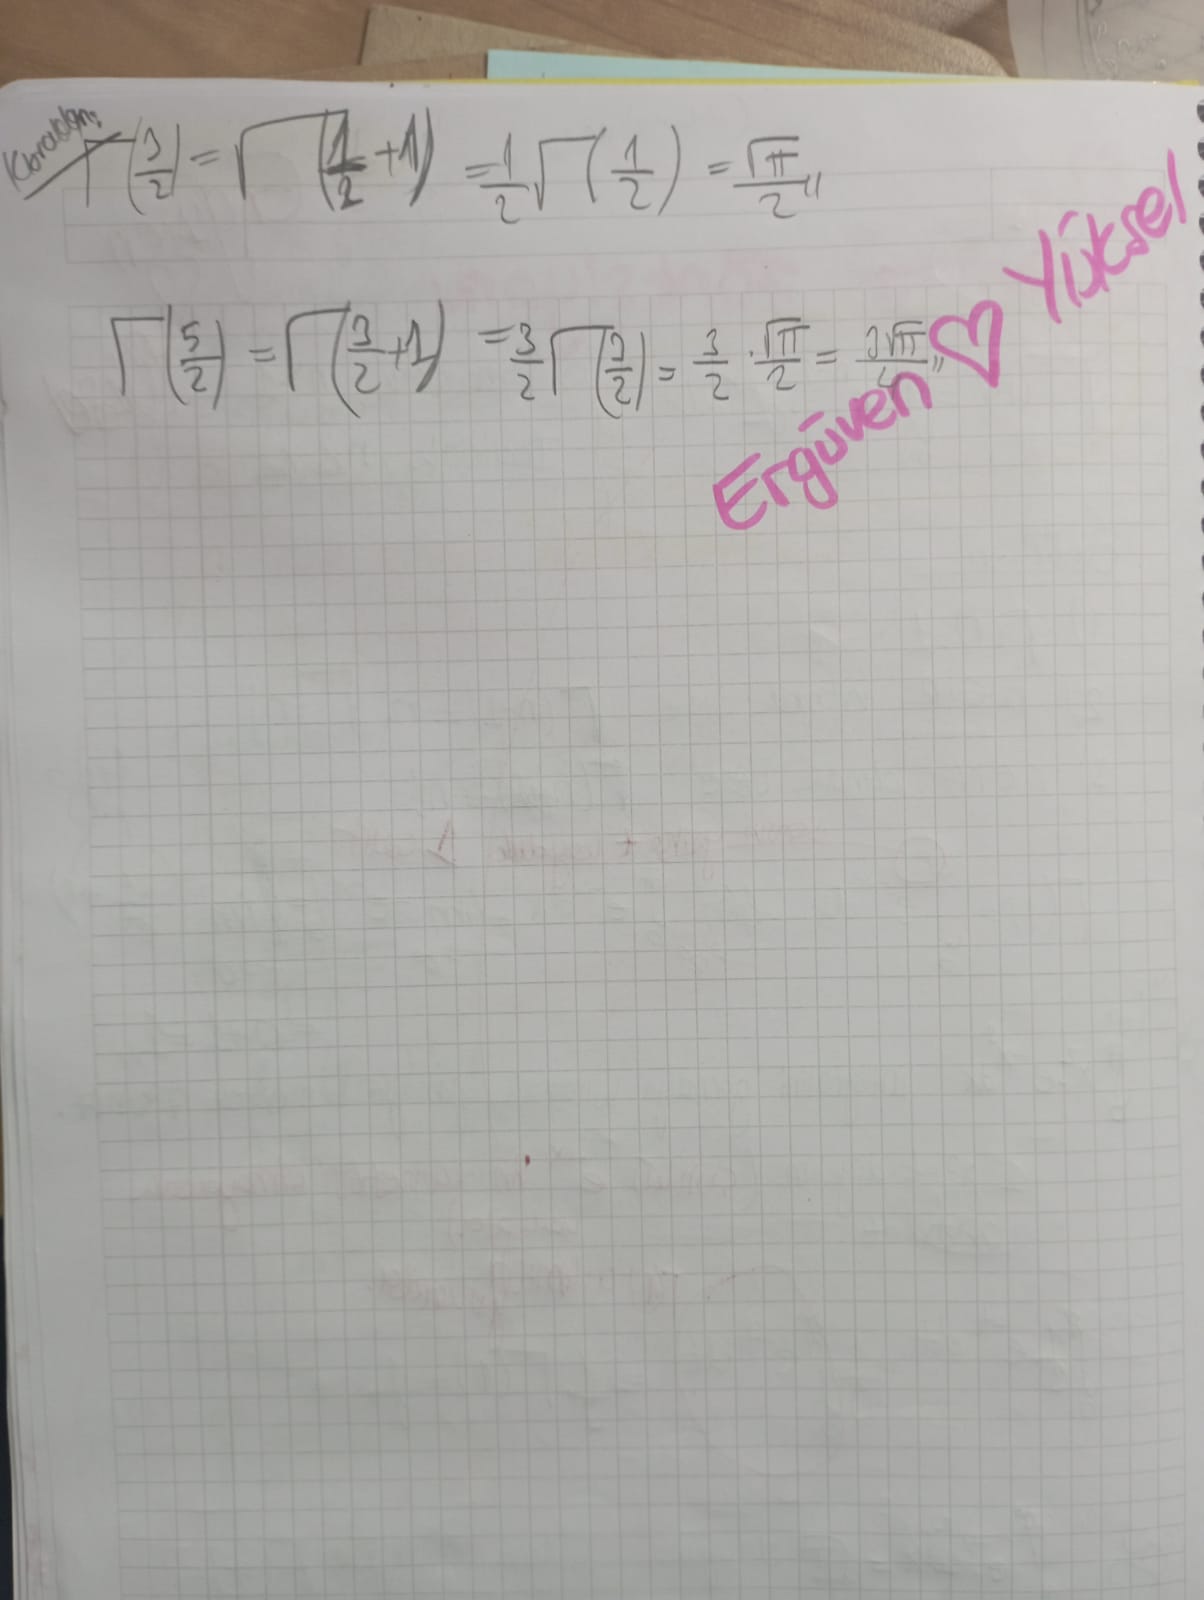 Γ(3/2) = Γ(1/2 + 1) = 1/2 Γ(1/2) = √π/2 //
Γ(5/2) = Γ(3/2 + 1) = 3/2 Γ(3/2) = 3/2 . √π/2 = 3√π/4 //
Ergüven ♡ Yüksel